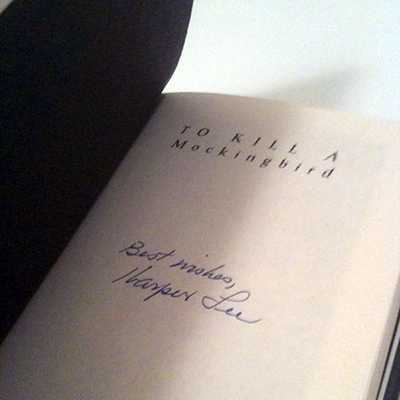 TO KILL A
Mockingbird
Best wishes,
Harper Lee